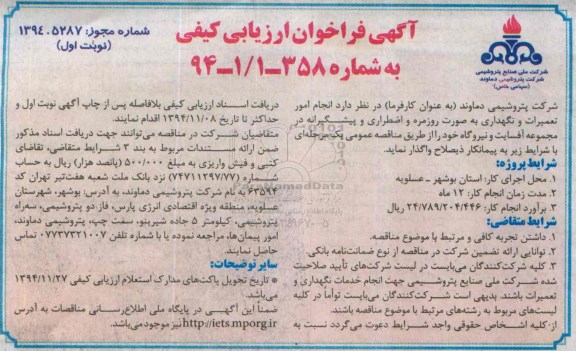 شرکت ملی صنایع پتروشیمی
شرکت پتروشیمی دماوند
(سهامی خاص)
آگهی فراخوان ارزیابی کیفی
به شماره ۳۵۸-۱/۱-۹۴
شماره مجوز: ۱۳۹۴.۵۲۸۷
(نوبت اول)
شرکت پتروشیمی دماوند (به عنوان کارفرما) در نظر دارد انجام امور
تعمیرات و نگهداری به صورت روزمره و اضطراری و پیشگیرانه در
مجموعه آفسایت و نیروگاه خود را از طریق مناقصه عمومی یک مرحله‌ای
با شرایط زیر به پیمانکار ذیصلاح واگذار نماید.
شرایط پروژه:
۱. محل اجرای کار: استان بوشهر ـ عسلویه
۲. مدت زمان انجام کار: ۱۲ ماه
۳. برآورد انجام کار: ۲۴/۷۸۹/۲۰۴/۴۴۶ ریال
شرایط متقاضی:
۱. داشتن تجربه کافی و مرتبط با موضوع مناقصه.
۲. توانایی ارائه تضمین شرکت در مناقصه از نوع ضمانت‌نامه بانکی.
۳. کلیه شرکت‌کنندگان می‌بایست در لیست شرکت‌های تأیید صلاحیت
شده شرکت ملی صنایع پتروشیمی جهت انجام خدمات نگهداری و
تعمیرات باشند. بدیهی است شرکت‌کنندگان می‌بایست توأماً در کلیه
لیست‌های مربوط به رشته‌های مرتبط با موضوع مناقصه باشند.
از کلیه اشخاص حقوقی واجد شرایط دعوت می‌گردد نسبت به
دریافت اسناد ارزیابی کیفی بلافاصله پس از چاپ آگهی نوبت اول و
حداکثر تا تاریخ ۱۳۹۴/۱۱/۰۸ اقدام نمایند.
متقاضیان شرکت در مناقصه می‌توانند جهت دریافت اسناد مذکور
ضمن ارائه مستندات مربوط به بند ۳ شرایط متقاضی، تقاضای
کتبی و فیش واریزی به مبلغ ۵۰۰/۰۰۰ (پانصد هزار) ریال به حساب
شماره (۷۴۷۱۱۲۹۷/۷۷) نزد بانک ملت شعبه هفت‌تیر تهران کد
۶۳۵۹۴ به نام شرکت پتروشیمی دماوند، به آدرس: بوشهر، شهرستان
عسلویه، منطقه ویژه اقتصادی انرژی پارس، فاز دو پتروشیمی، سه‌راه
پتروشیمی، کیلومتر ۵ جاده شیرینو، سمت چپ، پتروشیمی دماوند،
امور پیمان‌ها، مراجعه نموده یا با شماره تلفن ۰۷۷۳۷۳۲۱۰۰۷ تماس
حاصل نمایند.
سایر توضیحات:
* تاریخ تحویل پاکت‌های مدارک استعلام ارزیابی کیفی ۱۳۹۴/۱۱/۲۷
می‌باشد.
ضمناً این آگهی در پایگاه ملی اطلاع‌رسانی مناقصات به آدرس
http://iets.mporg.ir نیز موجود می‌باشد.